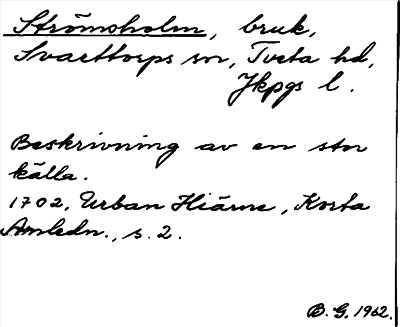 Strömsholm, bruk,
Svarttorps sn, Tveta hd,
Jkpgs l.
Beskrivning av en stor
källa.
1702. Urban Hiärne, Korta
Anledn., s. 2.
B. G. 1962.